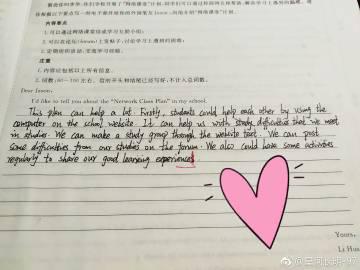 内容要点
1.可以通过网络课堂培训学习互助小组;
3.定期组织活动,交流学习经验。
注意
1.内容应包括以上所有信息。
2.词数:80—100左右。信的开头和结尾已给写好,不计入总词数。
Dear Jason,
I'd like to tell you about the "Network Class Plan" in my school.
This plan can help a lot. Firstly, students could help each other by using the
computer on the school website. It can help us with study difficulties that we meet
in studies. We can make a study group through the website test. We can post
some difficulties from our studies on the forum. We also could have some activities
regularly to share our good learning experiences.
Yours,
Li Hua